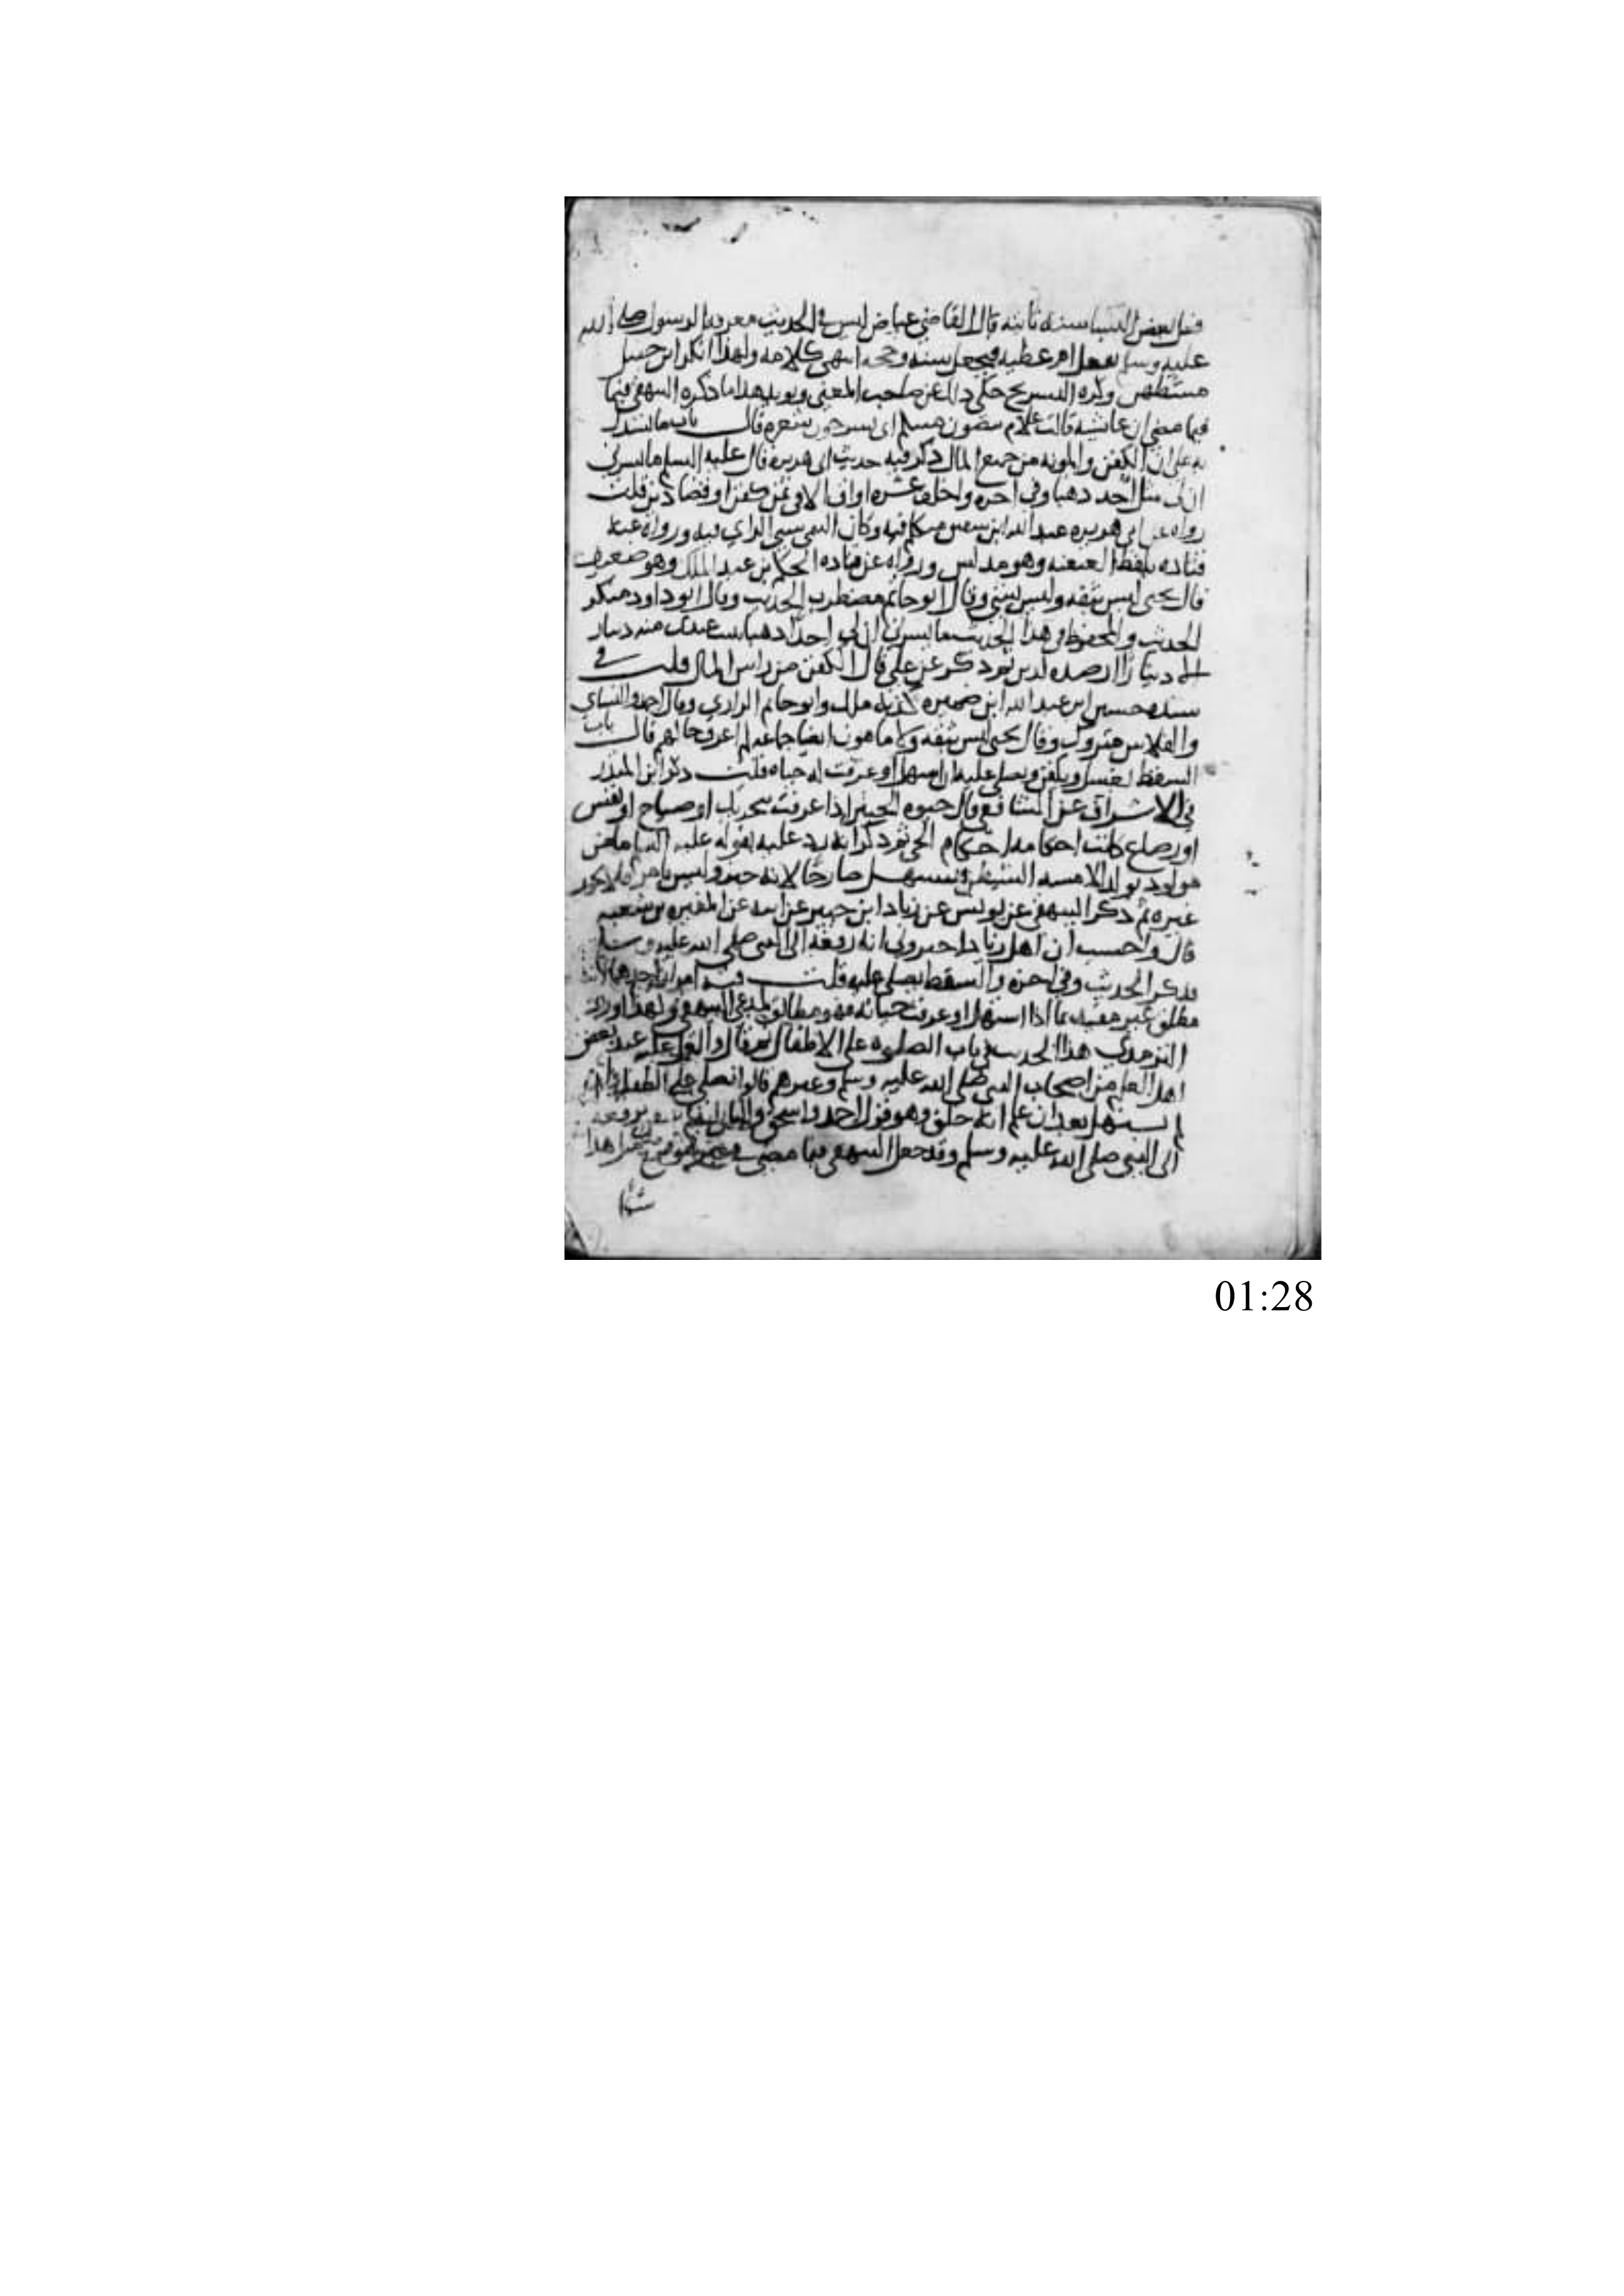 فعل بعض النسا سنة ثابته قال القاضي عياض ليس في الحديث معرفه الرسول صلى الله
عليه وسلم بفعل ام عطيه فيجعل سنه وحجه انتهى كلامه ولهذا انكر ابن حنبل
وكره التسريح حكى ذلك عن صاحب المغني ويويد هذا ما ذكره البيهقي فيما
فيما مضى ان عايشه قالت علام تنصون ميتكم اى تسرحون شعره قال باب ما يستدل
به على ان الكفن والمونه من جميع المال ذكر فيه حديث ابى هريره قال عليه السلم ما يسرنى
ان لى مثل احد ذهبا وفي اخره واخلف عشره اواق الا في ثمن كفن او قضا دين قلت
رواه عن ابى هريره عبد الله ابن شقيق متكلم فيه وكان التيمى سيى الراي فيه ورواه عنه
قتاده بلفظ العنعنه وهو مدلس ورواه عن قتاده الحكم بن عبد الملك وهو ضعيف
قال يحيى ليس بثقه وليس بشي وقال ابو حاتم مضطرب الحديث وقال ابو داود منكر
الحديث والمحفوظ في هذا الحديث ما يسرنى ان لي احدا ذهبا عندى منه دينار
الا دينارا ارصده لدين ثم ذكر عن علي قال الكفن من راس المال قلت في
سنده حسين ابن عبد الله ابن ضميره كذبه ملك وابو حاتم الرازي وقال احمد والنساي
والفلاس متروك وقال يحيى ليس بثقه ولا مامون ايضا جماعه لم اعرف حالهم قال باب
السقط يغسل ويكفن ويصلى عليه ان استهل او عرفت له حياه قلت ذكر ابن المنذر
في الاشراف عن الشافعي قال حيوه الجنين اذا عرفت بتحريك او صياح او نفس
او رضاع كانت احكامه احكام الحي ثم ذكر انه يرد عليه بقوله عليه السلم ما من
مولود يولد الا مسه الشيطن فيستهل صارخا لانه خبر وليس بامر فلا يجوز
غيره ثم ذكر البيهقي عن يونس عن زياد ابن جبير عن ابيه عن المغيره بن شعبه
قال واحسب ان اهل زياد اخبروني انه رفعه الى النبي صلى الله عليه وسلم
فذكر الحديث وفي اخره والسقط يصلى عليه قلت فيه امران احدهما انه
مطلق غير مقيد بما اذا استهل او عرفت حياته فهو مطابق لمدعى البيهقي ولهذا اورد
الترمذي هذا الحديث في باب الصلوه على الاطفال ثم قال والعمل عليه عند بعض
اهل العلم من اصحاب النبى صلى الله عليه وسلم وغيرهم قالوا نصلى على الطفل وان لم
يستهل بعد ان يعلم انه خلق وهو قول احمد واسحق والثاني انه يرفعه
الى النبي صلى الله عليه وسلم وقد جعل البيهقي فيما مضى في هذا
01:28